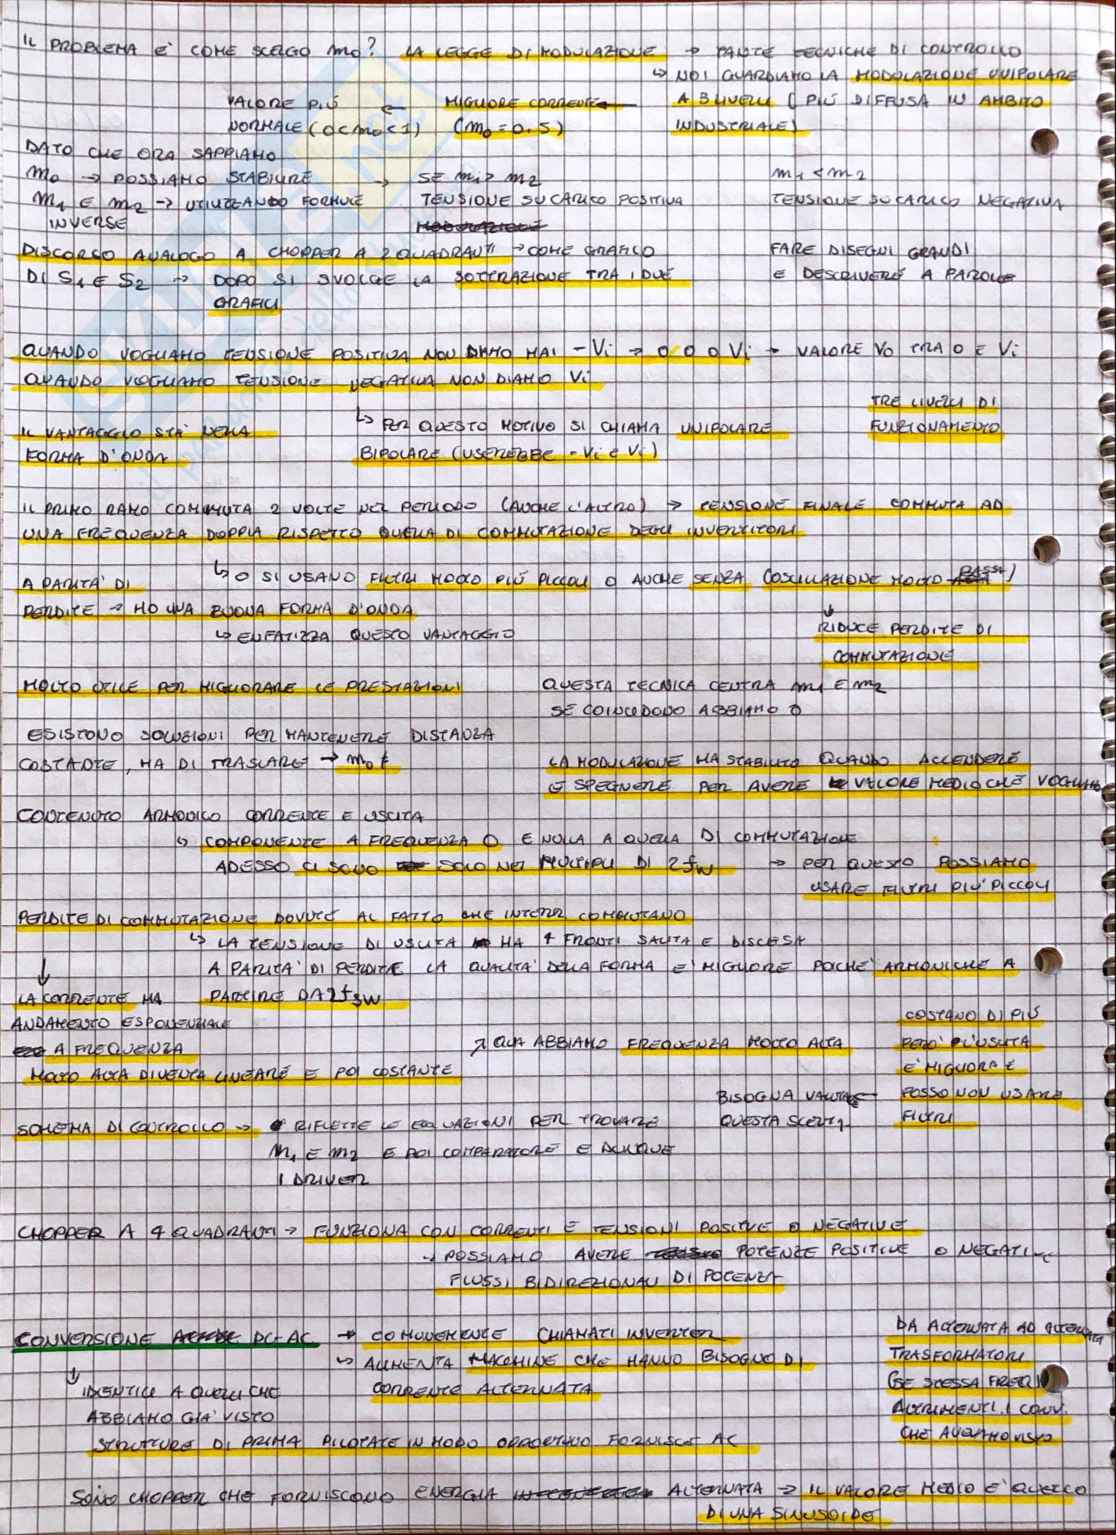 IL PROBLEMA E' COME SCELGO m0? LA LEGGE DI MODULAZIONE → TANTE TECNICHE DI CONTROLLO
↳ NOI GUARDIAMO LA MODULAZIONE UNIPOLARE
VALORE PIÙ ← MIGLIORE CORRENTE ← A 3 LIVELLI (PIÙ DIFFUSA IN AMBITO
NORMALE (0<m0<1) (m0=0.5) INDUSTRIALE)
DATO CHE ORA SAPPIAMO
m0 → POSSIAMO STABILIRE → SE m1 > m2 m1 < m2
m1 E m2 → UTILIZZANDO FORMULE TENSIONE SU CARICO POSITIVA TENSIONE SU CARICO NEGATIVA
INVERSE
DISCORSO ANALOGO A CHOPPER A 2 QUADRANTI → COME GRAFICO FARE DISEGNI GRANDI
DI S1 E S2 → DOPO SI SVOLGE LA SOTTRAZIONE TRA I DUE E DESCRIVERE A PAROLE
GRAFICI
QUANDO VOGLIAMO TENSIONE POSITIVA NON DIAMO MAI -Vi → 0 0 0 Vi → VALORE V0 TRA 0 E Vi
QUANDO VOGLIAMO TENSIONE NEGATIVA NON DIAMO Vi
TRE LIVELLI DI
IL VANTAGGIO STA' NELLA ↳ PER QUESTO MOTIVO SI CHIAMA UNIPOLARE FUNZIONAMENTO
FORMA D'ONDA BIPOLARE (USEREBBE -Vi E Vi)
IL PRIMO RAMO COMMUTA 2 VOLTE NEL PERIODO (ANCHE L'ALTRO) → TENSIONE FINALE COMMUTA AD
UNA FREQUENZA DOPPIA RISPETTO QUELLA DI COMMUTAZIONE DEGLI INVERTITORI
↳ O SI USANO FILTRI MOLTO PIÙ PICCOLI O ANCHE SENZA (OSCILLAZIONE MOLTO BASSA)
A PARITA' DI
PERDITE → HO UNA BUONA FORMA D'ONDA ↓
↳ ENFATIZZA QUESTO VANTAGGIO RIDUCE PERDITE DI
COMMUTAZIONE
MOLTO UTILE PER MIGLIORARE LE PRESTAZIONI QUESTA TECNICA CENTRA m1 E m2
SE COINCIDODO ABBIAMO 0
ESISTONO SOLUZIONI PER MANTENERE DISTANZA
COSTANTE, MA DI TRASLARE → m0 LA MODULAZIONE HA STABILITO QUANDO ACCENDERE
E SPEGNERE PER AVERE VALORE MEDIO CHE VOGLIAMO
CONTENUTO ARMONICO CORRENTE E USCITA
↳ COMPONENTE A FREQUENZA 0 E NULLA A QUELLA DI COMMUTAZIONE
ADESSO CI SONO SOLO NEI MULTIPLI DI 2fsw → PER QUESTO POSSIAMO
USARE FILTRI PIU' PICCOLI
PERDITE DI COMMUTAZIONE DOVUTE AL FATTO CHE INTERR COMMUTANO
↳ LA TENSIONE DI USCITA HA 4 FRONTI SALITA E DISCESA
↓ A PARITA' DI PERDITE LA QUALITA' DELLA FORMA E' MIGLIORE POICHE' ARMONICHE A
LA CORRENTE HA PARTIRE DA 2fsw
ANDAMENTO ESPONENZIALE COSTANO DI PIÙ
A FREQUENZA ↗ QUA ABBIAMO FREQUENZA MOLTO ALTA PERO' L'USCITA
MOLTO ALTA DIVENTA LINEARE E POI COSTANTE E' MIGLIORE E
BISOGNA VALUTARE POSSO NON USARE
SCHEMA DI CONTROLLO → RIFLETTE LE EQUAZIONI PER TROVARE QUESTA SCELTA FILTRI
m1 E m2 E POI COMPARATORE E DUNQUE
I DRIVER
CHOPPER A 4 QUADRANTI → FUNZIONA CON CORRENTI E TENSIONI POSITIVE O NEGATIVE
→ POSSIAMO AVERE POTENZE POSITIVE O NEGATIVE
FLUSSI BIDIREZIONALI DI POTENZA
CONVERSIONE DC-AC → COMUNEMENTE CHIAMATI INVERTER DA ALTERNATA AD ALTERNATA
↳ ALIMENTA MACCHINE CHE HANNO BISOGNO DI TRASFORMATORI
↓ IDENTICI A QUELLI CHE CORRENTE ALTERNATA (SE STESSA
ABBIAMO GIA' VISTO ALTRIMENTI I CONV.
STRUTTURE DI PRIMA PILOTATE IN MODO FORNISCE AC CHE AVEVAMO VISTO
SONO CHOPPER CHE FORNISCONO ENERGIA ALTERNATA → IL VALORE MEDIO E' QUELLO
DI UNA SINUSOIDE